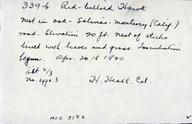 339-b Red-bellied Hawk
Nest in oak - Salinas - Monterey (Calif)
road. Elevation 20 ft. Nest of sticks
lined with leaves and grass. Incubation
begun. Apr. 20th 18
Set 4/3
No. eggs 3
H. Cal.